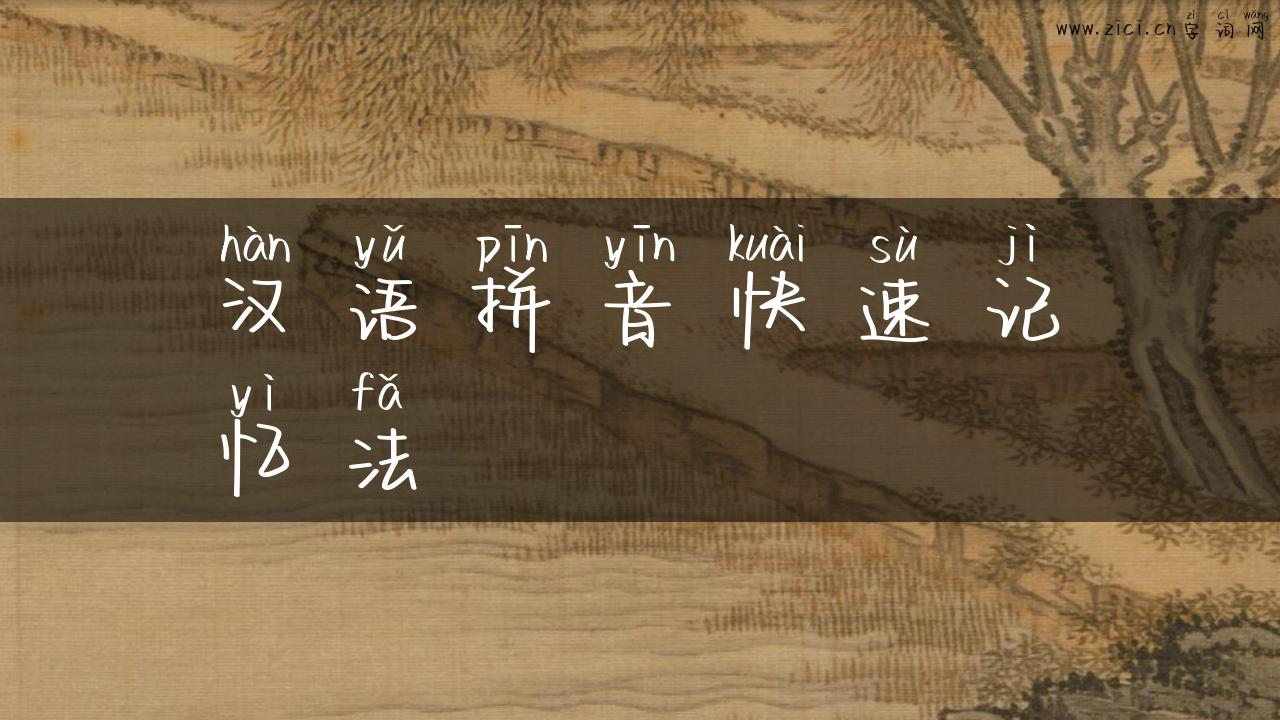 zì cí wǎng
www.zici.cn字词网
hàn yǔ pīn yīn kuài sù jì
汉语拼音快速记
yì fǎ
忆法